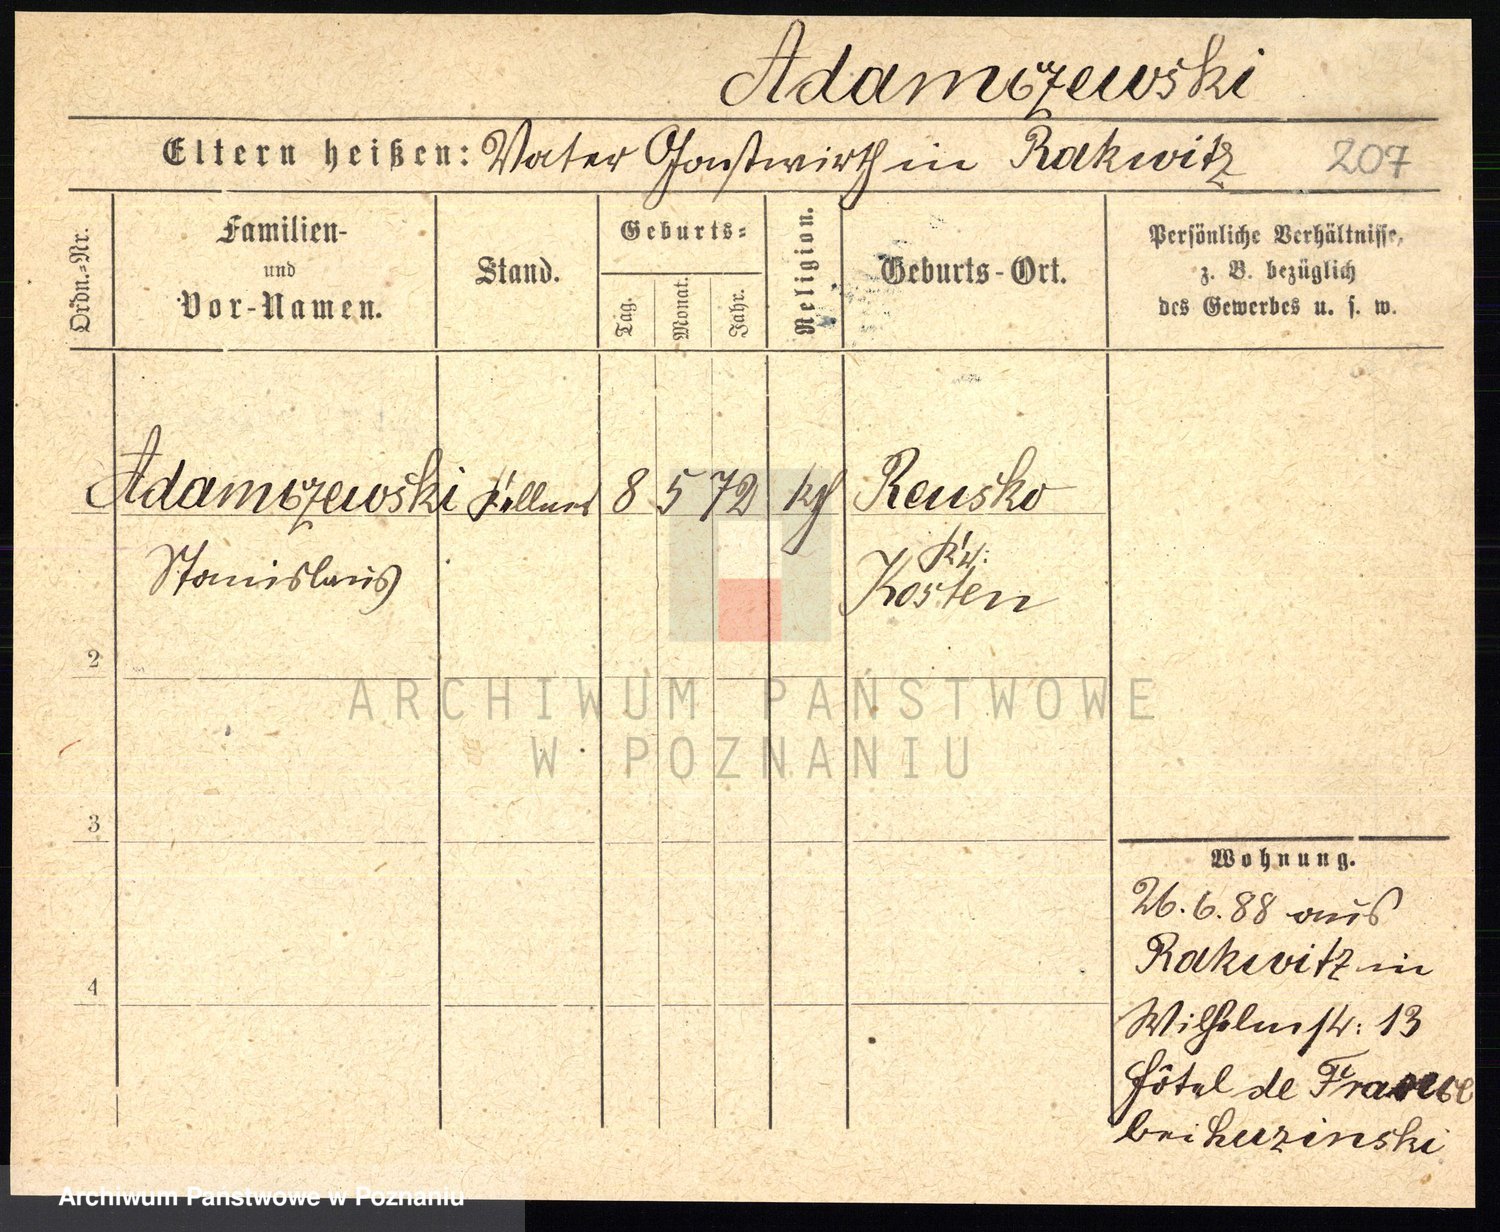 Adamczewski
Eltern heißen: Vater Gastwirth in Rakwitz 207
Ordn.-Nr.
Familien-
und
Vor-Namen.
Stand.
Geburts-
Tag.
Monat.
Jahr.
Religion.
Geburts-Ort.
Persönliche Verhältnisse,
z. B. bezüglich
des Gewerbes u. s. w.
Adamczewski Kellner 8 5 72 kth Reusko
Stanislaus
Kr:
Kosten
2
3
4
Wohnung.
26.6.88 aus
Rakwitz in
Wilhelmstr: 13
Hôtel de France
bei Luzinski
ARCHIWUM PAŃSTWOWE
W POZNANIU
Archiwum Państwowe w Poznaniu